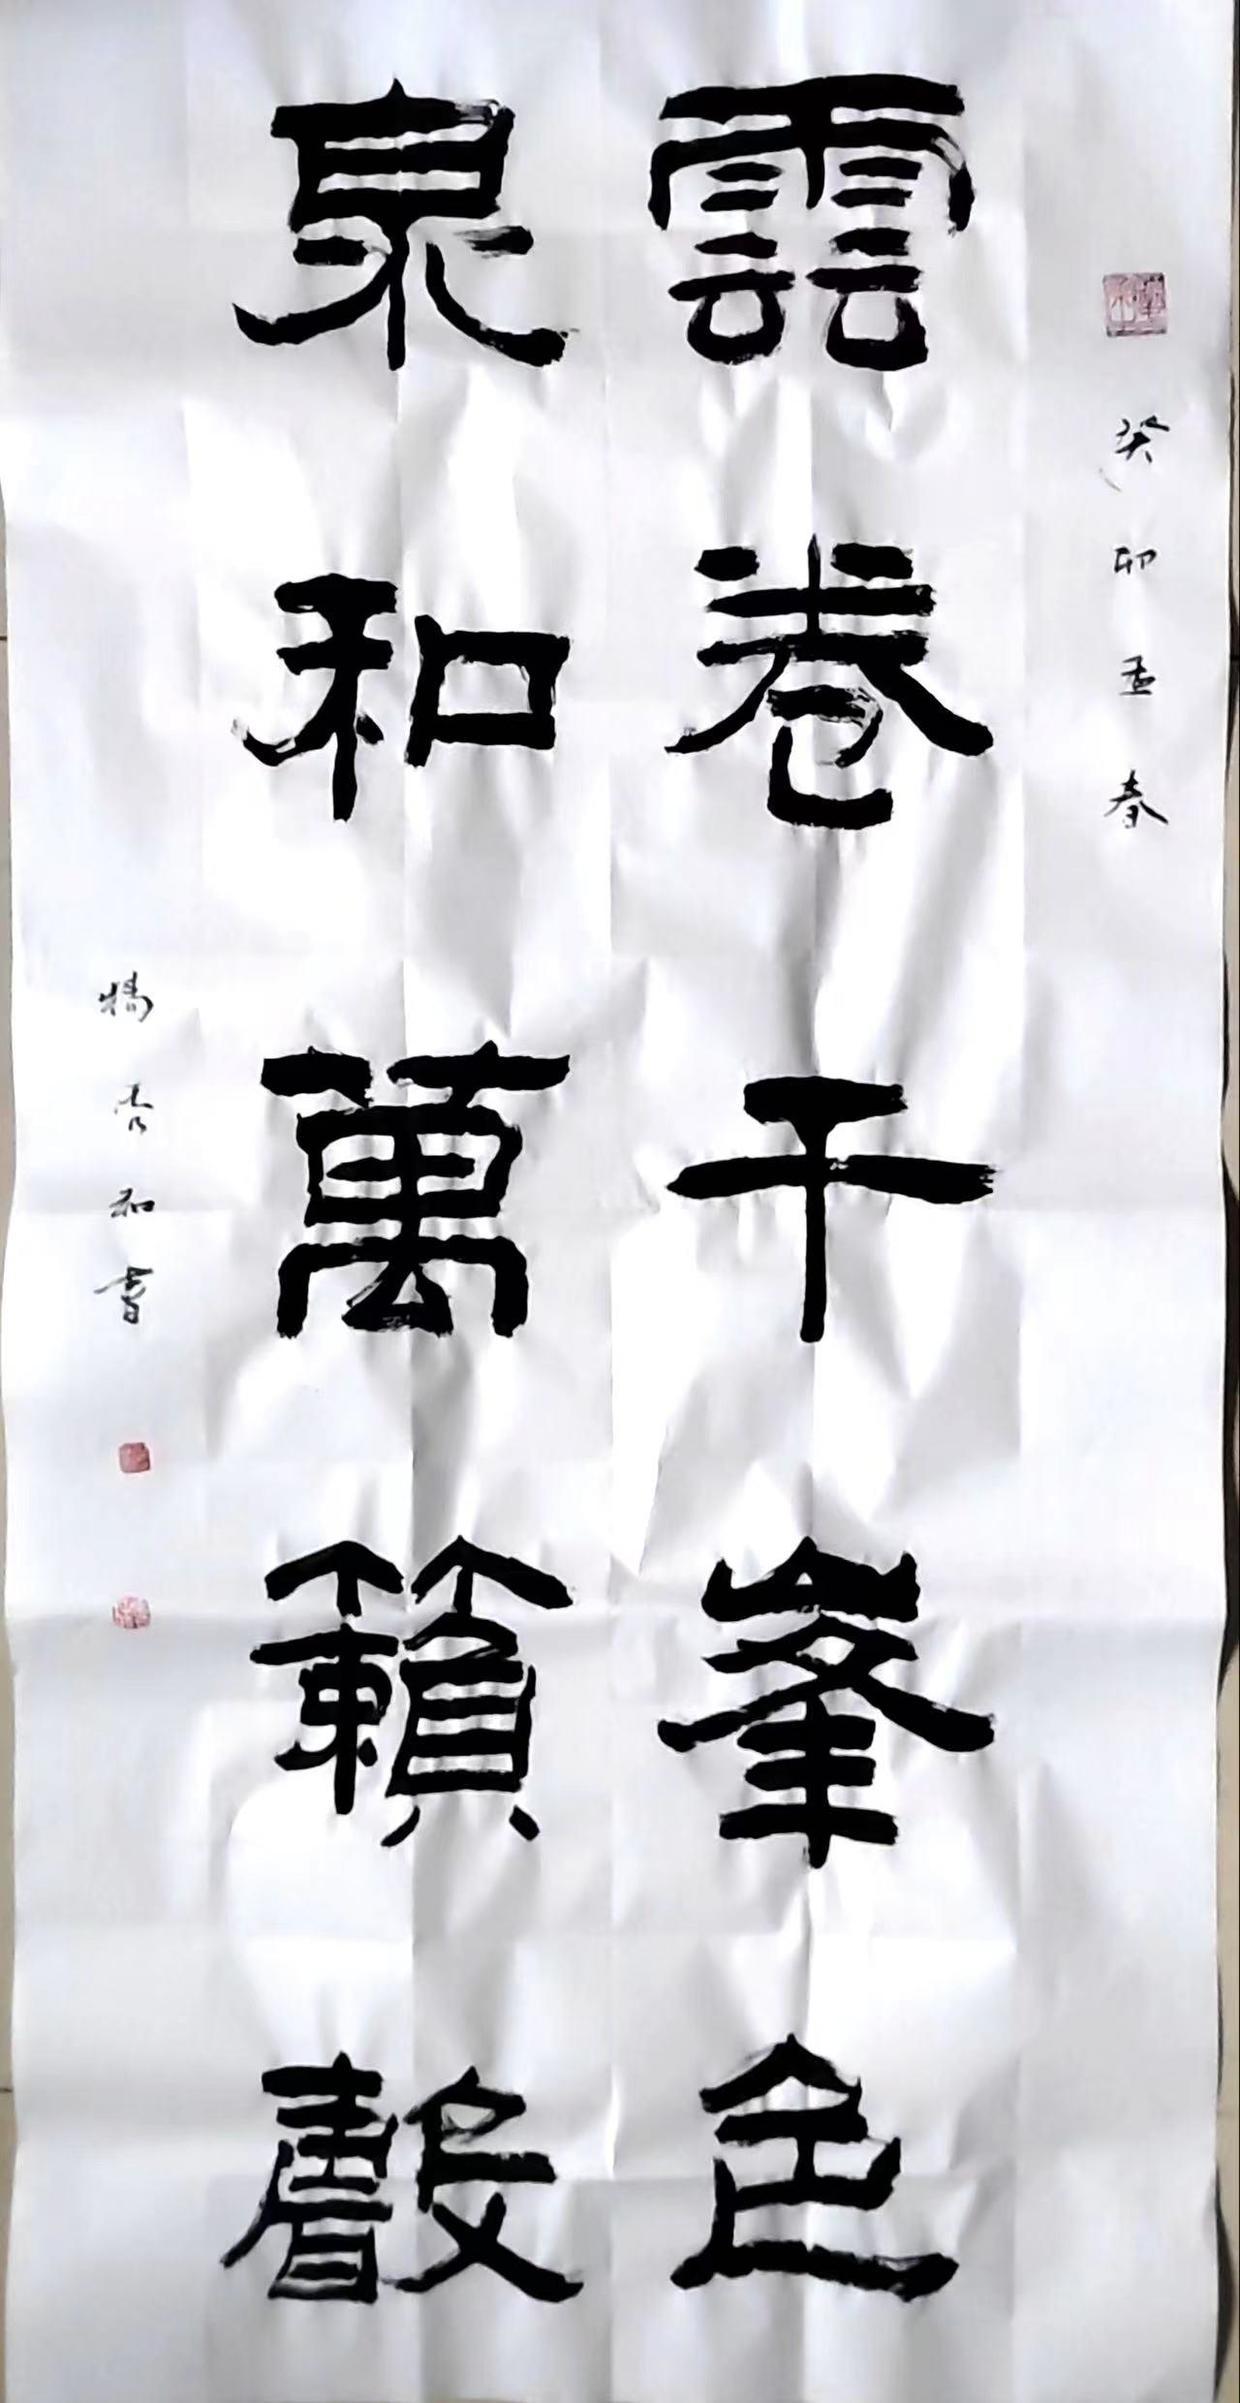 癸卯孟春
雲卷千峯色
泉和萬籟聲
和書